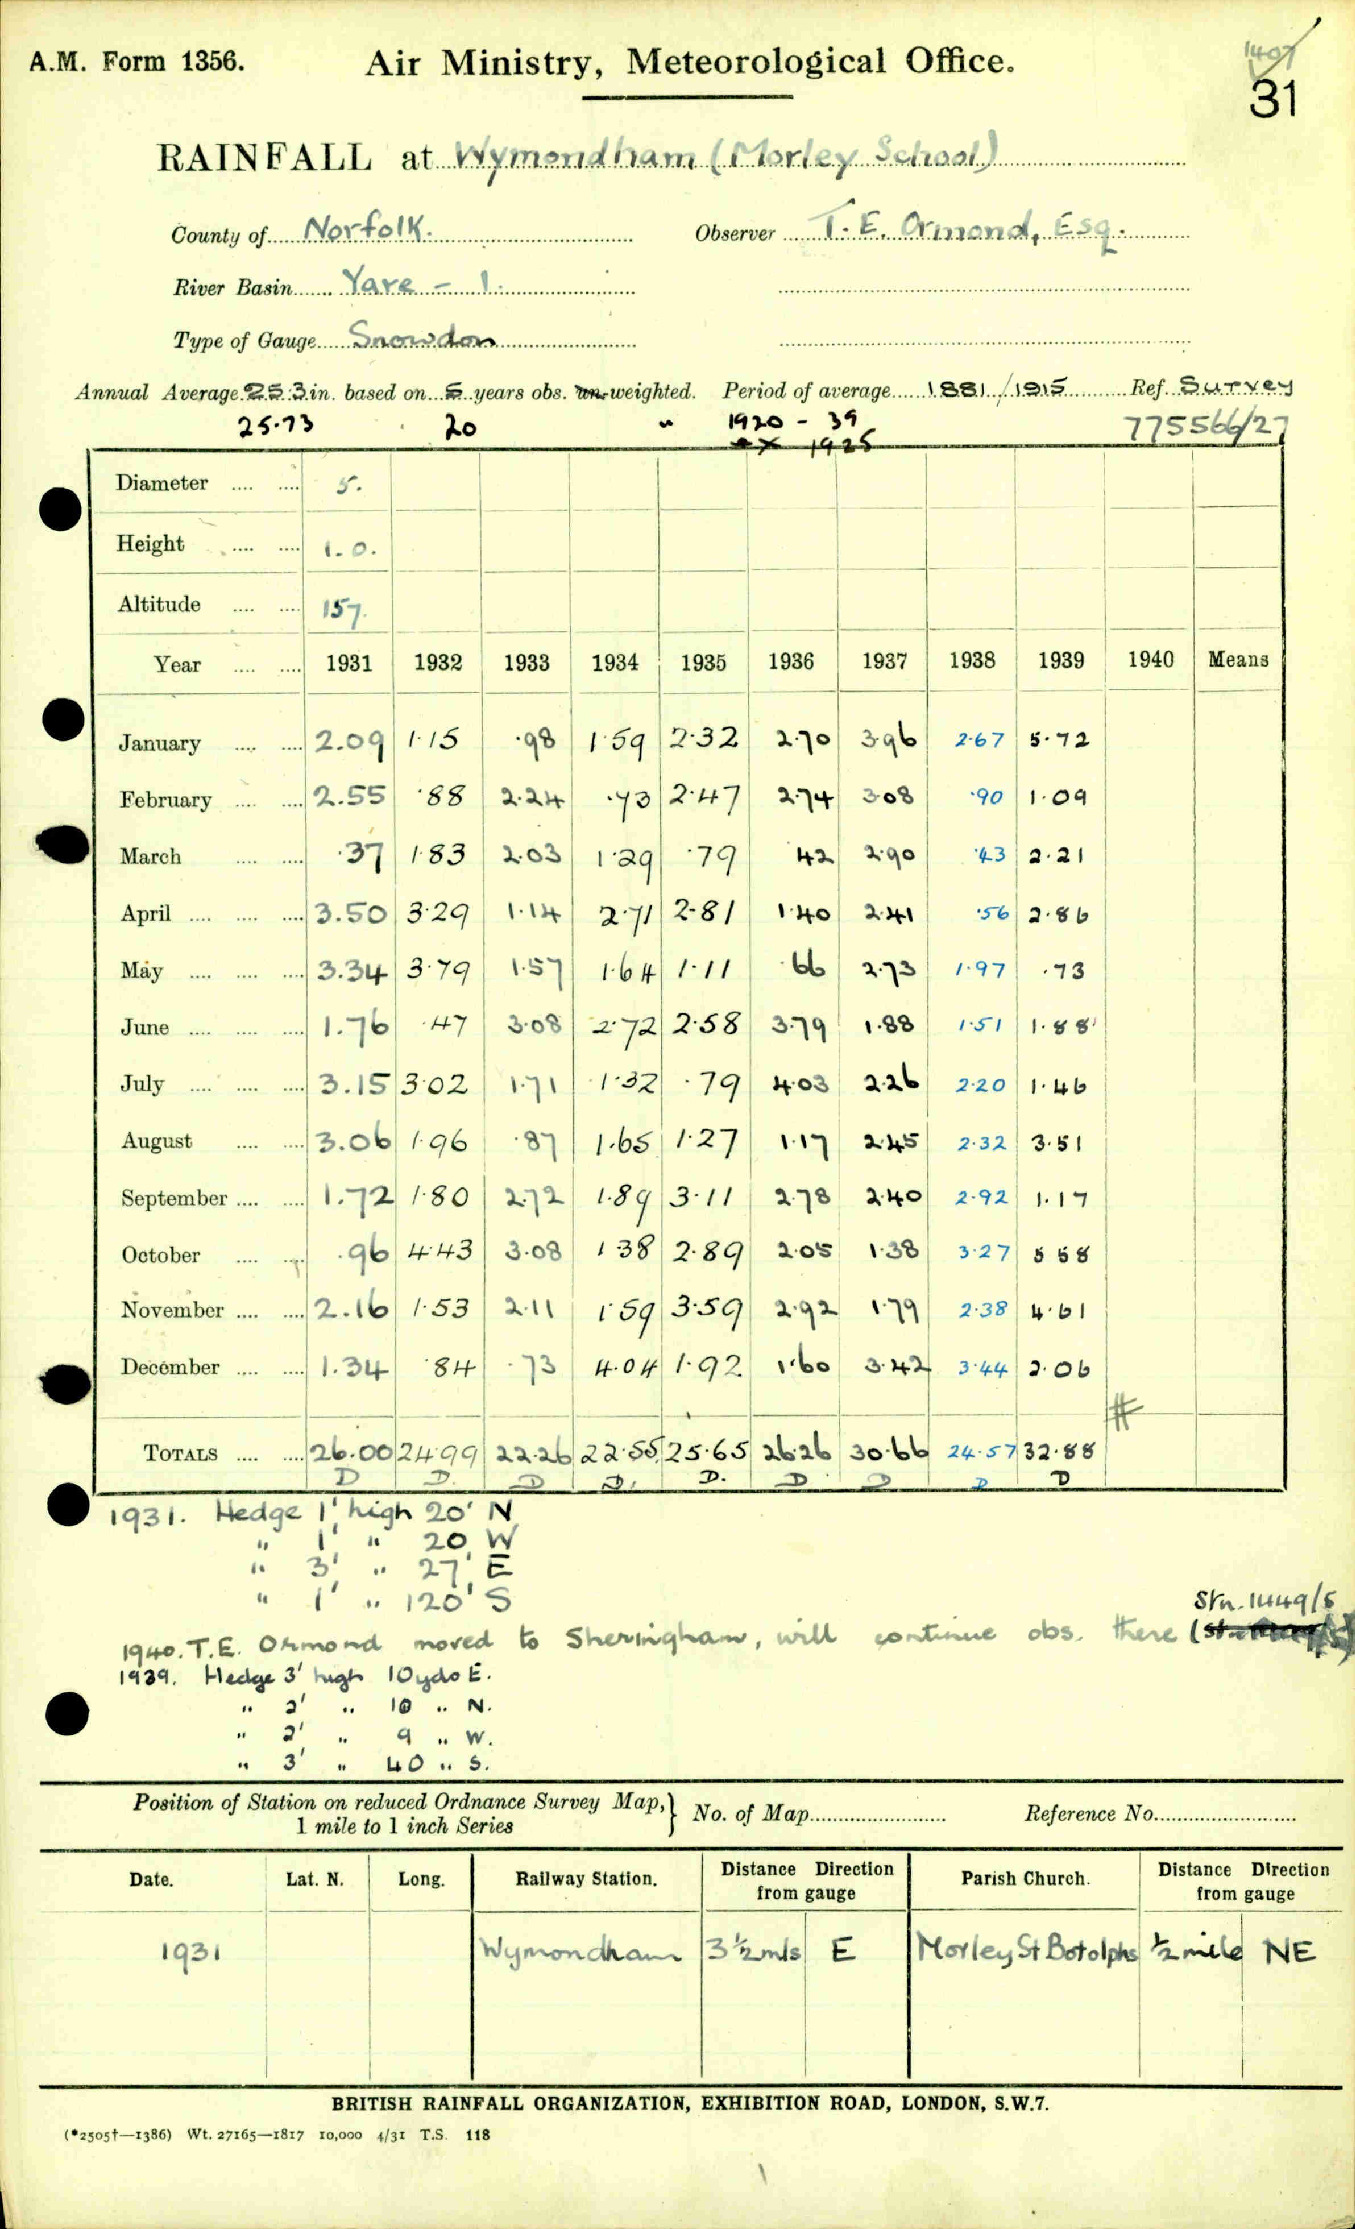 A.M. Form 1356. Air Ministry, Meteorological Office. 1407
31
RAINFALL at Wymondham (Morley School)
County of Norfolk. Observer T. E. Ormond, Esq.
River Basin Yare - 1.
Type of Gauge Snowdon
Annual Average 25.3 in. based on 5 years obs. un-weighted. Period of average 1881/1915 Ref. Survey
25.73 20 " 1920 - 39 775566/27
ex 1925
Diameter .... .... 5.
Height .... .... 1.0.
Altitude .... .... 157.
Year .... .... 1931 1932 1933 1934 1935 1936 1937 1938 1939 1940 Means
January .... .... 2.09 1.15 .98 1.59 2.32 2.70 3.96 2.67 5.72
February .... .... 2.55 .88 2.24 .73 2.47 2.74 3.08 .90 1.09
March .... .... .37 1.83 2.03 1.29 .79 .42 2.90 .43 2.21
April .... .... .... 3.50 3.29 1.14 2.71 2.81 1.40 2.41 .56 2.86
May .... .... .... 3.34 3.79 1.57 1.64 1.11 .66 2.73 1.97 .73
June .... .... .... 1.76 .47 3.08 2.72 2.58 3.79 1.88 1.51 1.88
July .... .... .... 3.15 3.02 1.71 1.32 .79 4.03 2.26 2.20 1.46
August .... .... 3.06 1.96 .87 1.65 1.27 1.17 2.45 2.32 3.51
September .... .... 1.72 1.80 2.72 1.89 3.11 2.78 2.40 2.92 1.17
October .... .... .96 4.43 3.08 1.38 2.89 2.05 1.38 3.27 5 58
November .... .... 2.16 1.53 2.11 1.59 3.59 2.92 1.79 2.38 4.61
December .... .... 1.34 .84 .73 4.04 1.92 1.60 3.42 3.44 2.06
#
TOTALS .... .... 26.00 24.99 22.26 22.55 25.65 26.26 30.66 24.57 32.88
D D. D D. D. D D D D
1931. Hedge 1' high 20' N
" 1' " 20 W
" 3' " 27' E
" 1' " 120' S
Stn. 1449/5
1940. T.E. Ormond moved to Sheringham, will continue obs. there (
1939. Hedge 3' high 10 yds E.
" 2' " 10 " N.
" 2' " 9 " W.
" 3' " 40 " S.
Position of Station on reduced Ordnance Survey Map, } No. of Map Reference No.
1 mile to 1 inch Series
Date. Lat. N. Long. Railway Station. Distance Direction from gauge Parish Church. Distance Direction from gauge
1931 Wymondham 3½ mls E Morley St Botolphs ½ mile NE
BRITISH RAINFALL ORGANIZATION, EXHIBITION ROAD, LONDON, S.W.7.
(*2505†—1386) Wt. 27165—1817 10,000 4/31 T.S. 118